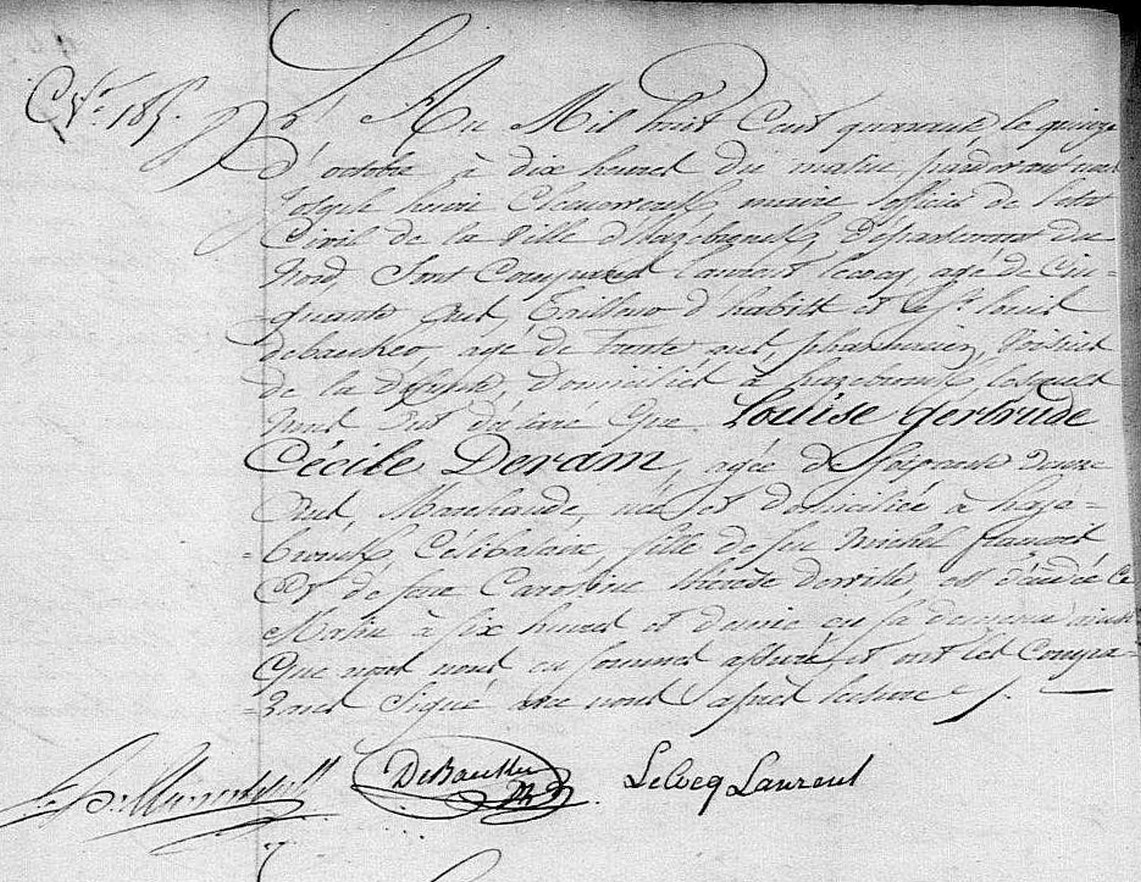 N.° 185.
L'An Mil huit Cent quarante le quinze
d'octobre à dix heures du matin, pardevant nous
Joseph henri maire officier de l'état
Civil de la Ville d'hazebrouck, Département du
Nord, Sont Comparus Laurent lecocq, agé de Cin=
=quante ans, Tailleur d'habits et le Sr. louis
debaecker, agé de Trente ans, pharmacien, Voisins
de la défunte, domiciliés à hazebrouck, lesquels
nous ont déclaré que Louise Gertrude
Cécile Deram, agée de soixante
ans, Marchande, née et domiciliée à haze=
=brouck, Célibataire, fille de feu Michel françois
Et de feue Caroline thérèse, est décédée Ce
Matin à six heures et demie en sa demeure ainsi
Que nous nous en sommes assuré, et ont les Compa=
=rans Signé avec nous après lecture /.
LeCocq Laurent